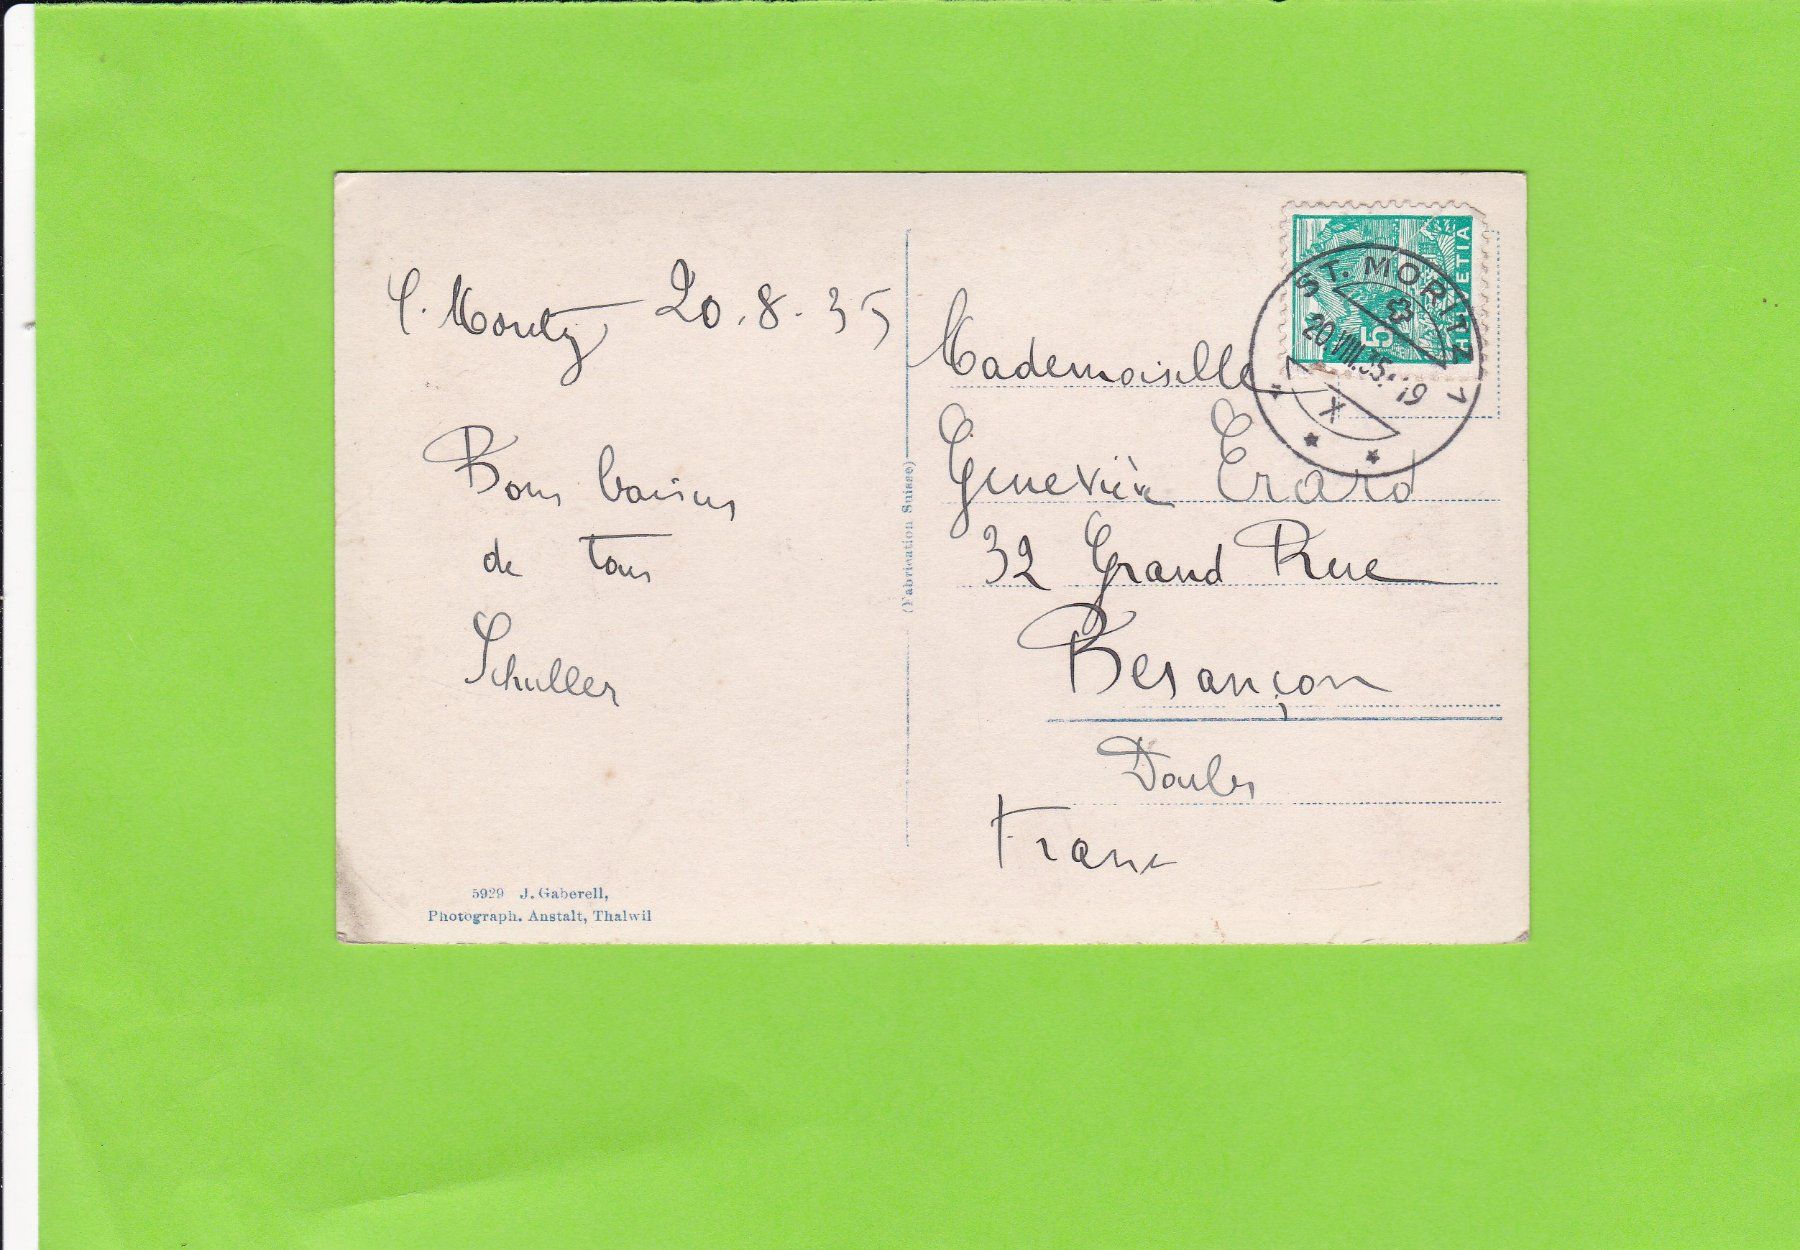 S. Moritz 20.8.35
Bons baisers
de tous
Schuller
5929 J. Gaberell,
Photograph. Anstalt, Thalwil
(Fabrication Suisse)
HELVETIA
5
ST. MORITZ 1
20.VIII.35. 19
X
Mademoiselle
Geneviève Erard
32 Grand Rue
Besançon
Doubs
France